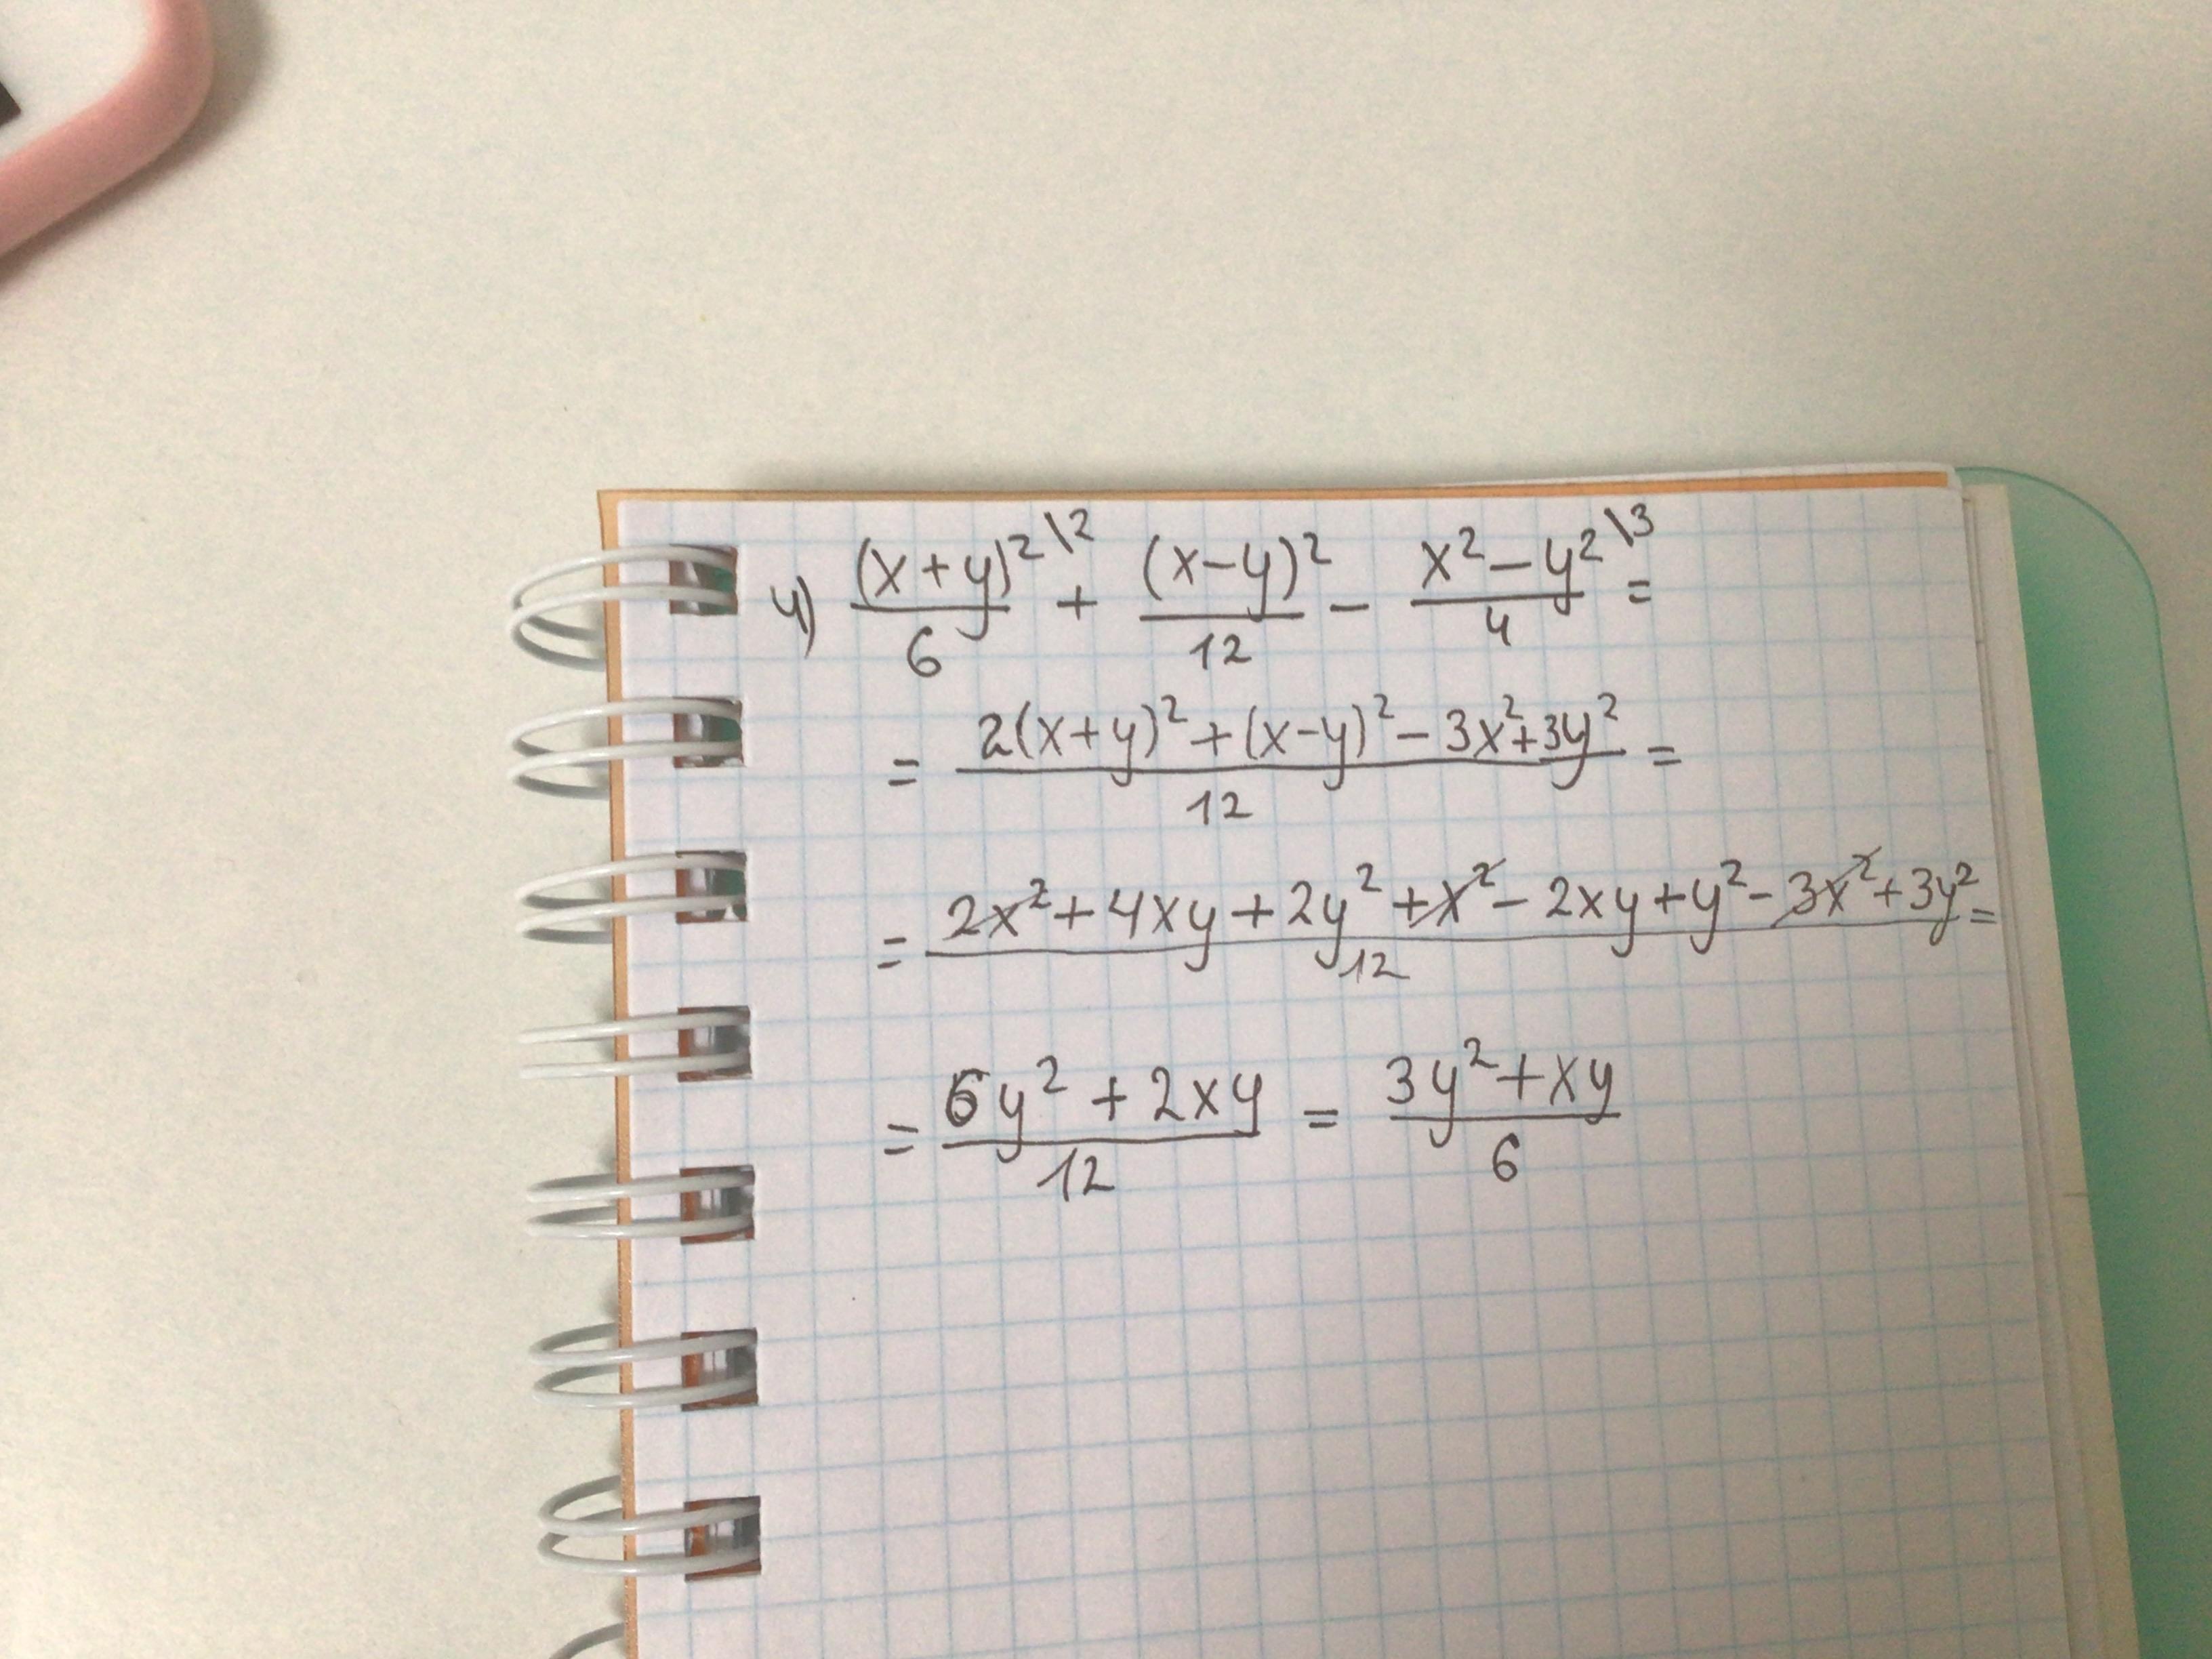 4) (x+y)²\2/6 + (x-y)²/12 - x²-y²\3/4 =
= 2(x+y)²+(x-y)²-3x²+3y²/12 =
= 2x²+4xy+2y²+x²-2xy+y²-3x²+3y²/12 =
= 6y²+2xy/12 = 3y²+xy/6